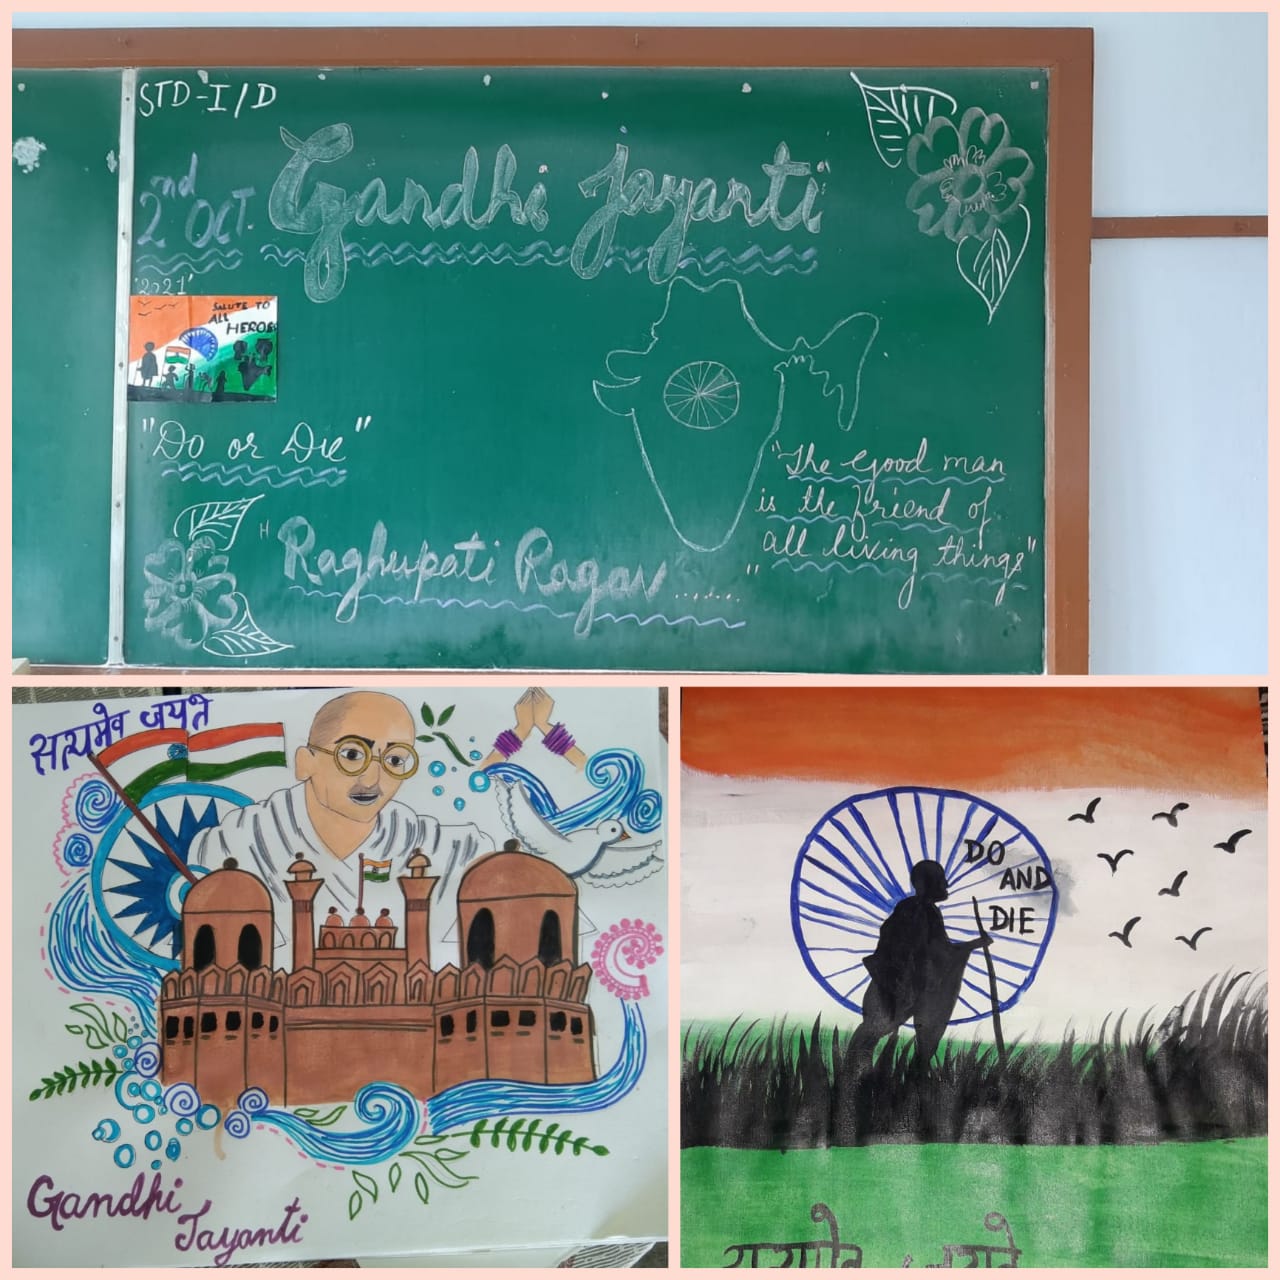 STD-I/D
2nd OCT. Gandhi Jayanti
'2021'
SALUTE TO
ALL
HEROES
"Do or Die"
"The Good man
is the friend of
all living things"
"Raghupati Ragav ......"
सत्यमेव जयते
Gandhi
Jayanti
DO
AND
DIE
सत्यमेव जयते